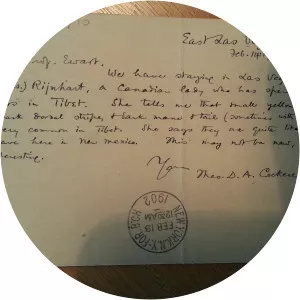 East Las Ve
Feb. 14
Prof. Ewart.
We have staying in Las Ve
) Rijnhart, a Canadian lady who has spen
in Tibet. She tells me that small yellow
dark dorsal stripe, & dark mane & tail (sometimes with
very common in Tibet. She says they are quite like
have here in New Mexico. This may not be new,
interesting.
Yours
Theo. D. A. Cockere
NEW YORK, N.Y.
FEB 19
1902